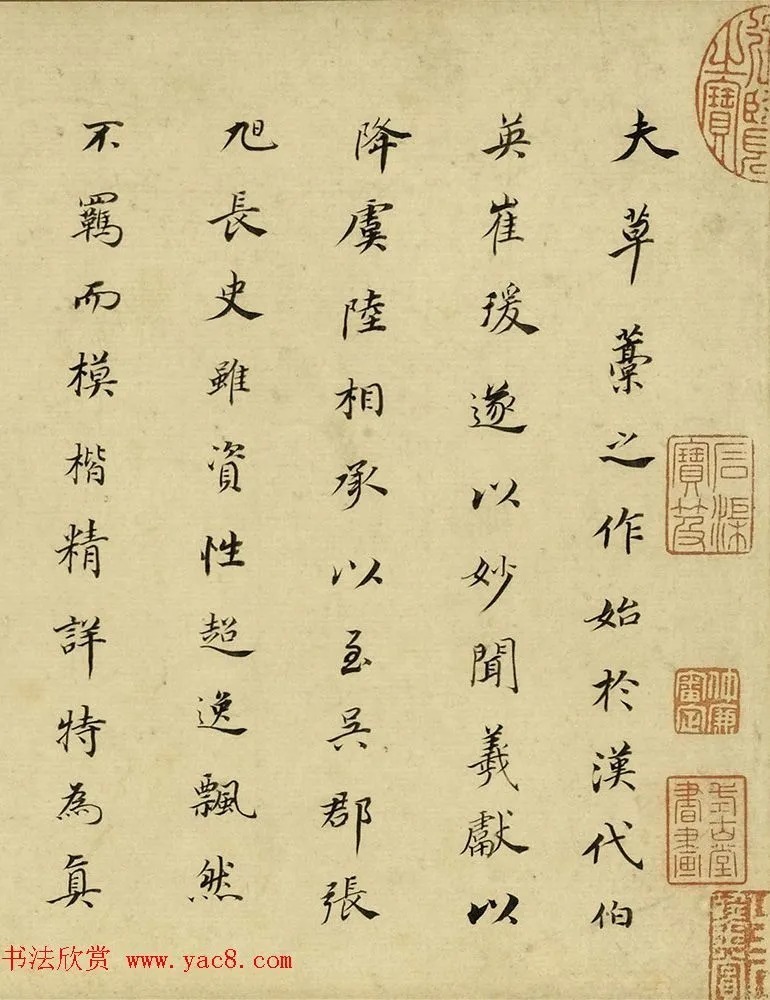 夫草藁之作始於漢代伯
英崔瑗遂以妙聞羲獻以
降虞陸相承以至吳郡張
旭長史雖資性超逸飄然
不羈而模楷精詳特為真
书法欣赏 www.yac8.com